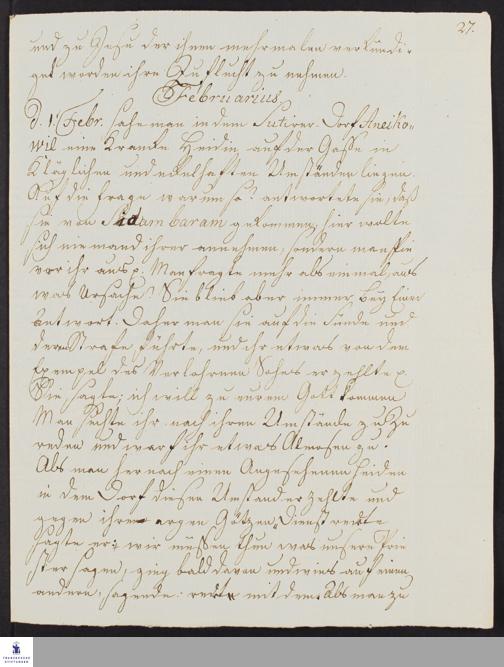 27.
und zu Jesu der ihnen mehrmalen verkündi-
get worden ihre Zuflucht zu nehmen.
Februarius
d. 1. Febr. sahe man in dem Sutirer-Dorf Aneiko-
wil eine Krancke Heidin auf der Gasse in
kläglichen und ekelhaften Umständen liegen.
Auf die frage warum so? antwortete sie, daß
sie von Sidambaram gekommen, hier wolte
sich niemand ihrer annehmen, sondern man spie
vor ihr aus p. Man fragte mehr als einmal, aus
was Ursache? Sie blieb aber immer bey einer
Antwort. Daher man sie auf die Sünde und
deren Strafe führte, und ihr etwas von dem
Exempel des Verlohrnen Sohns erzehlte p
Sie sagte; ich will zu eurem Gott kommen
Man suchte ihr nach ihren Umständen zu zu
reden und warf ihr etwas Almosen zu.
Als man hernach einem Angesehenen Heiden
in dem Dorf diesen Umstand erzehlte und
gegen ihren argen Götzen-Dienst redete
sagte er: wir müssen thun was unsere Prie-
ster sagen, ging bald davon und wies auf einen
andern, sagende: redet mit dem. Als man zu
FRANCKESCHE
STIFTUNGEN